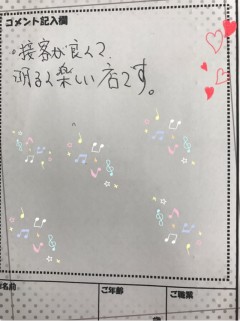 コメント記入欄
・接客が良くて、
明るく楽しい店です。
お名前
ご年齢
ご職業
歳